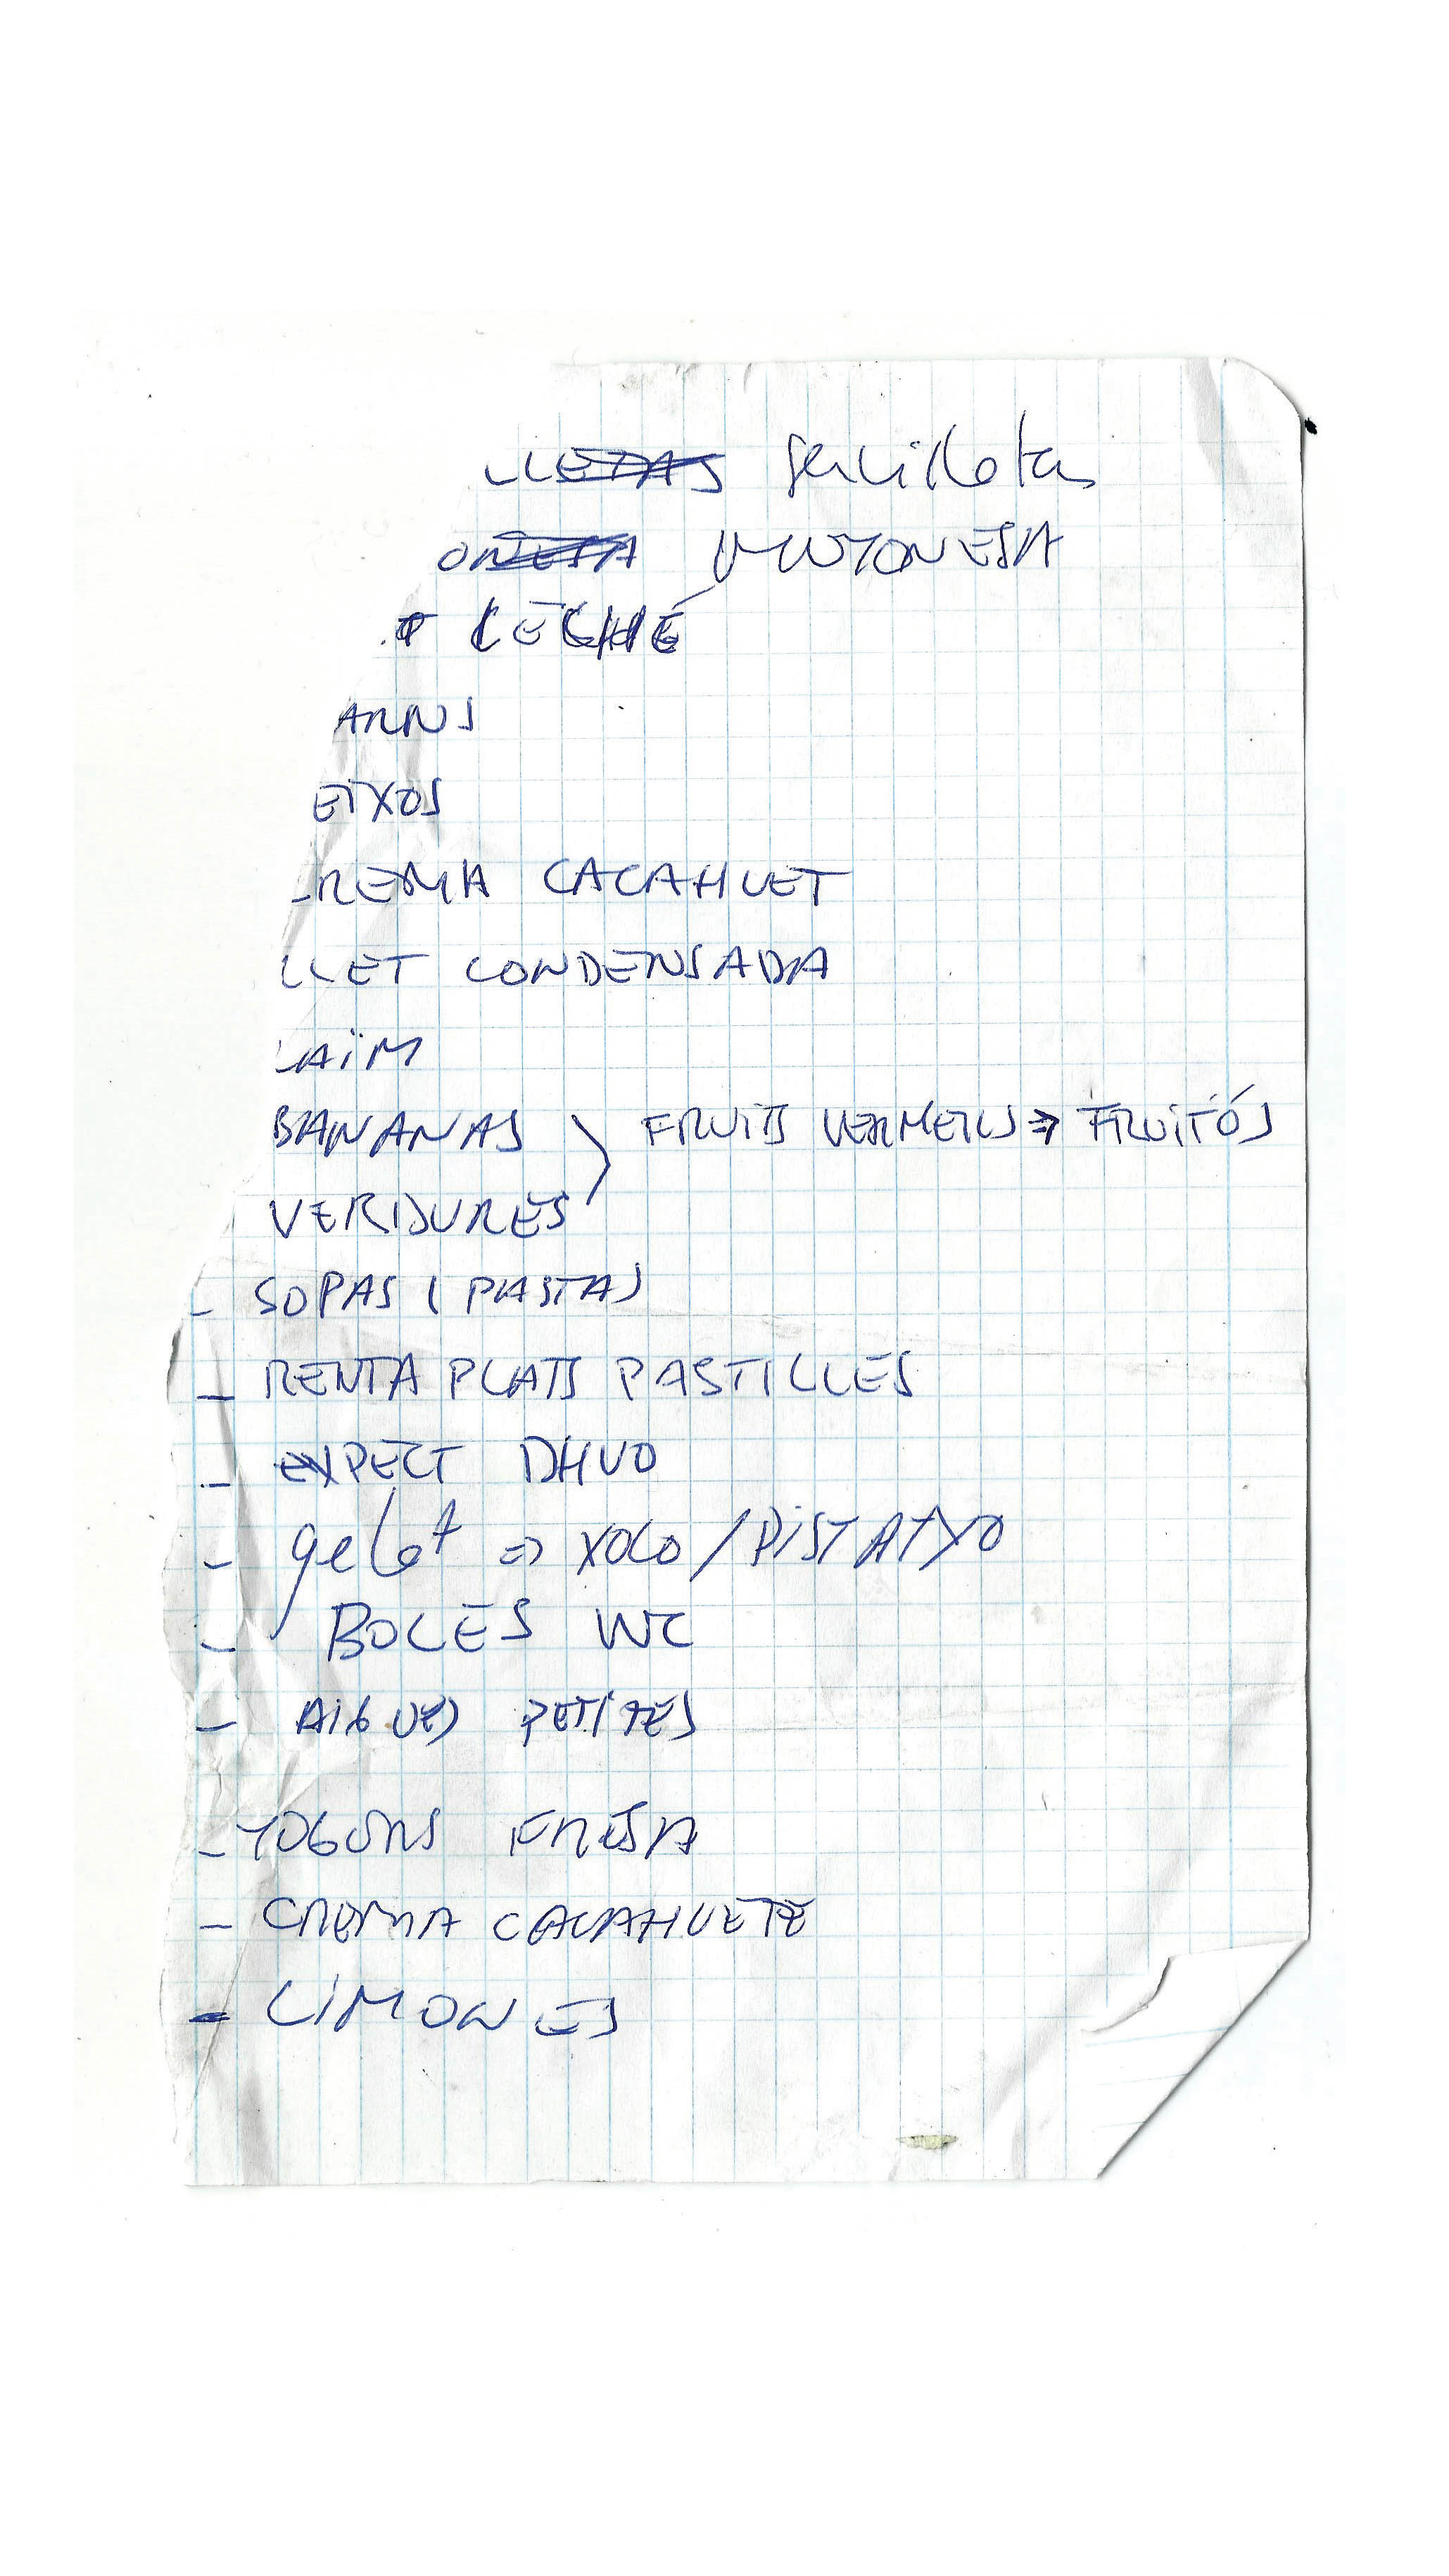 LLETAS Servilletas
ONESA MAYONESA
LECHE
ARNS
EIXOS
REMA CACAHUET
LLET CONDENSADA
LAÏM
BANANAS } FRUITS VERMELLS => FRUITÓS
VERDURES
- SOPAS (PASTA)
- RENTA PLATS PASTILLES
- EXPECT DHUO
- gelat => XOCO / PISTATXO
- BOLES WC
- AIGUES PETITES
- YOGURS FRESA
- CREMA CACAHUETE
- LIMONES